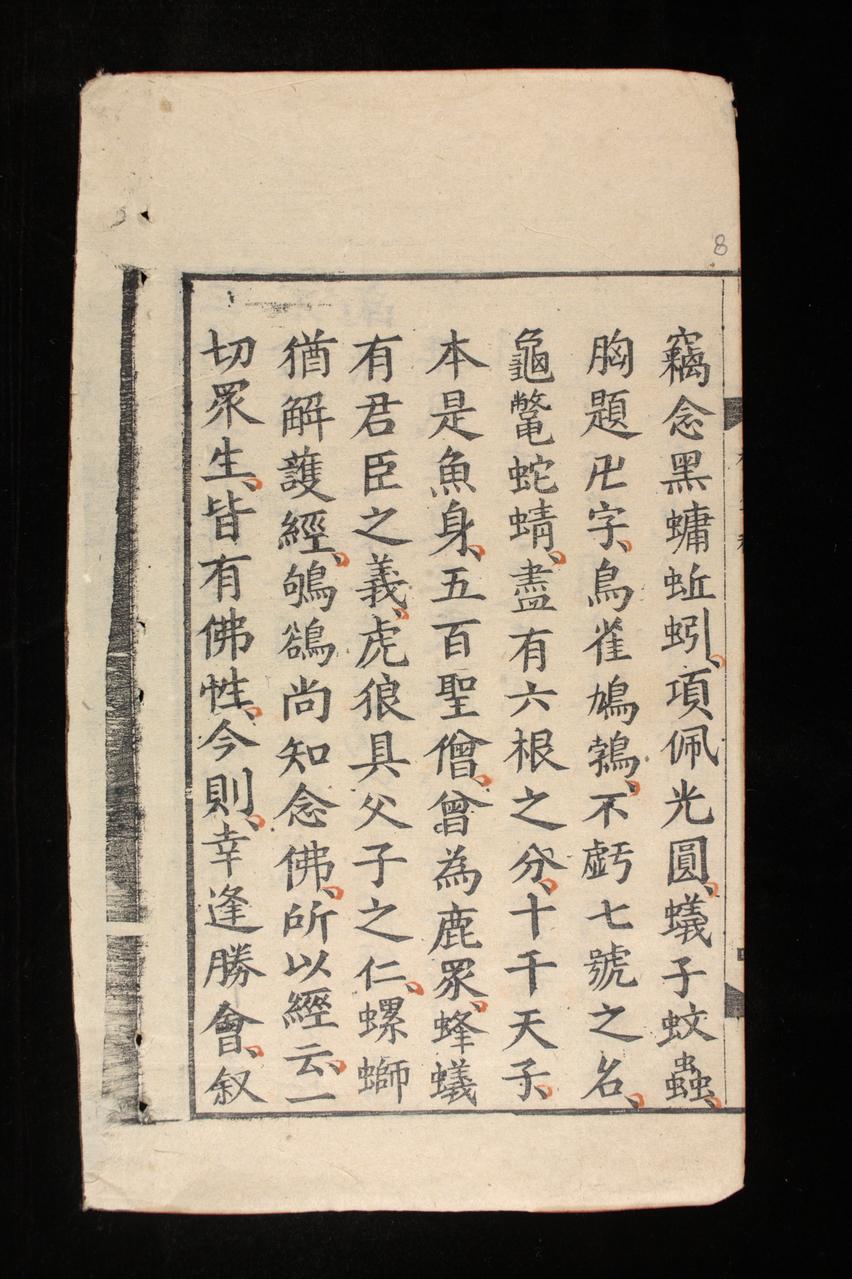 竊念黑螾蚯蚓、項佩光圓、蟻子蚊蟲、
胸題卍字、鳥雀鳩鶉、不虧七號之名、
龜鼈蛇蜻、盡有六根之分、十千天子、
本是魚身、五百聖僧、曾為鹿眾、蜂蟻
有君臣之義、虎狼具父子之仁、螺螄
猶解護經、鴝鵒尚知念佛、所以經云、一
切眾生、皆有佛性、今則、幸逢勝會、叙
8